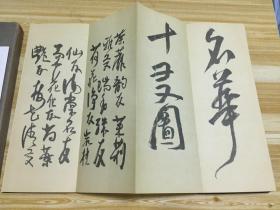 名華
十友圖
荼蘼韵友茉莉
雅友瑞香殊友
荷花淨友岩桂
仙友海棠名友
菊花佳友芍藥
艷友梅花清友